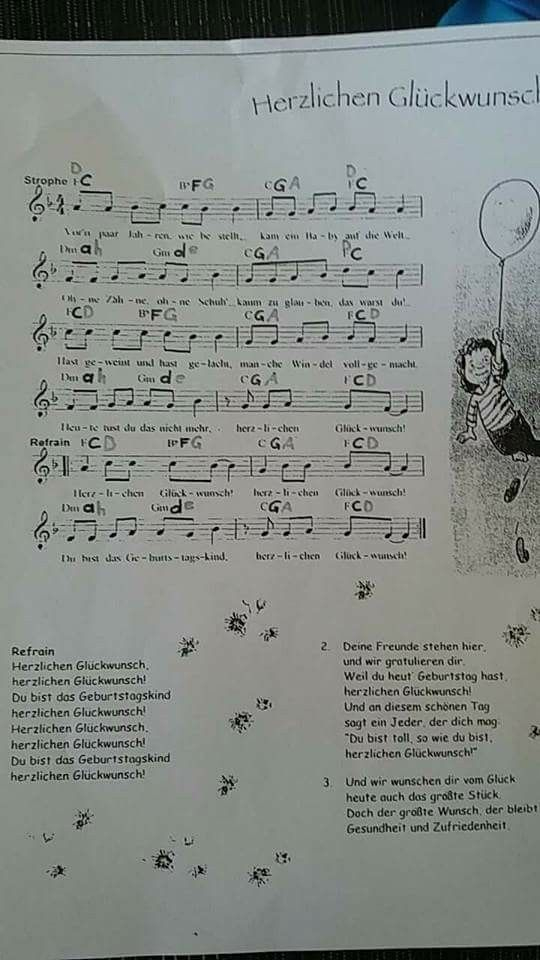 Herzlichen Glückwunsch
D D
Strophe F C B♭ F G C G A F C
Vor'n paar Jah - ren, wie be - stellt, kam ein Ba - by auf die Welt.
Dm a h Gm d e C G A F C
Oh - ne Zäh - ne, oh - ne Schuh', kaum zu glau - ben, das warst du!
F C D B♭ F G C G A F C D
Hast ge - weint und hast ge - lacht, man - che Win - del voll - ge - macht.
Dm a h Gm d e C G A F C D
Heu - te tust du das nicht mehr, herz - li - chen Glück - wunsch!
Refrain F C D B♭ F G C G A F C D
Herz - li - chen Glück - wunsch! herz - li - chen Glück - wunsch!
Dm a h Gm d e C G A F C D
Du bist das Ge - burts - tags - kind, herz - li - chen Glück - wunsch!
Refrain
Herzlichen Glückwunsch,
herzlichen Glückwunsch!
Du bist das Geburtstagskind
herzlichen Glückwunsch!
Herzlichen Glückwunsch,
herzlichen Glückwunsch!
Du bist das Geburtstagskind
herzlichen Glückwunsch!
2. Deine Freunde stehen hier,
und wir gratulieren dir.
Weil du heut' Geburtstag hast,
herzlichen Glückwunsch!
Und an diesem schönen Tag
sagt ein Jeder, der dich mag:
"Du bist toll, so wie du bist,
herzlichen Glückwunsch!"
3. Und wir wünschen dir vom Glück
heute auch das größte Stück.
Doch der größte Wunsch, der bleibt
Gesundheit und Zufriedenheit.